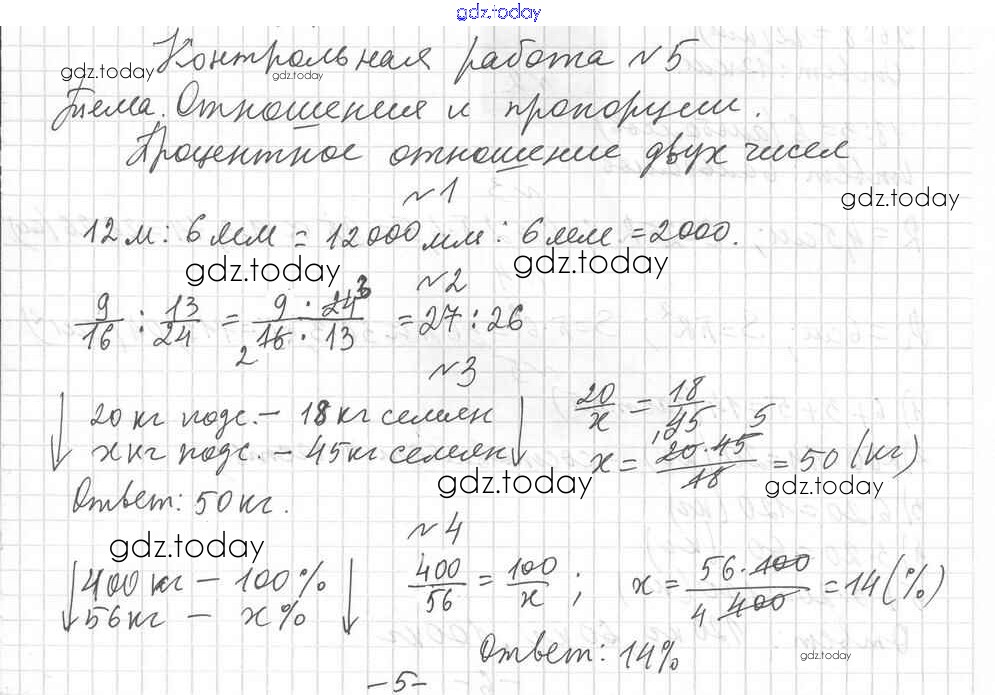 gdz.today
Контрольная работа №5
gdz.today gdz.today
Тема. Отношения и пропорции.
Процентное отношение двух чисел
gdz.today
№1
12 м : 6 мм = 12000 мм : 6 мм = 2000.
gdz.today gdz.today
№2
9/16 : 13/24 = 9 · 24 3 / 2 16 · 13 = 27 : 26
№3
20 кг подс. – 18 кг семян 20/x = 18/45
x кг подс. – 45 кг семян x = 10 20 · 45 5 / 18 = 50 (кг)
gdz.today gdz.today
Ответ: 50 кг.
№4
gdz.today
400 кг – 100% 400/56 = 100/x ; x = 56 · 100 / 4 400 = 14 (%)
56 кг – x%
Ответ: 14%
gdz.today
– 5 –